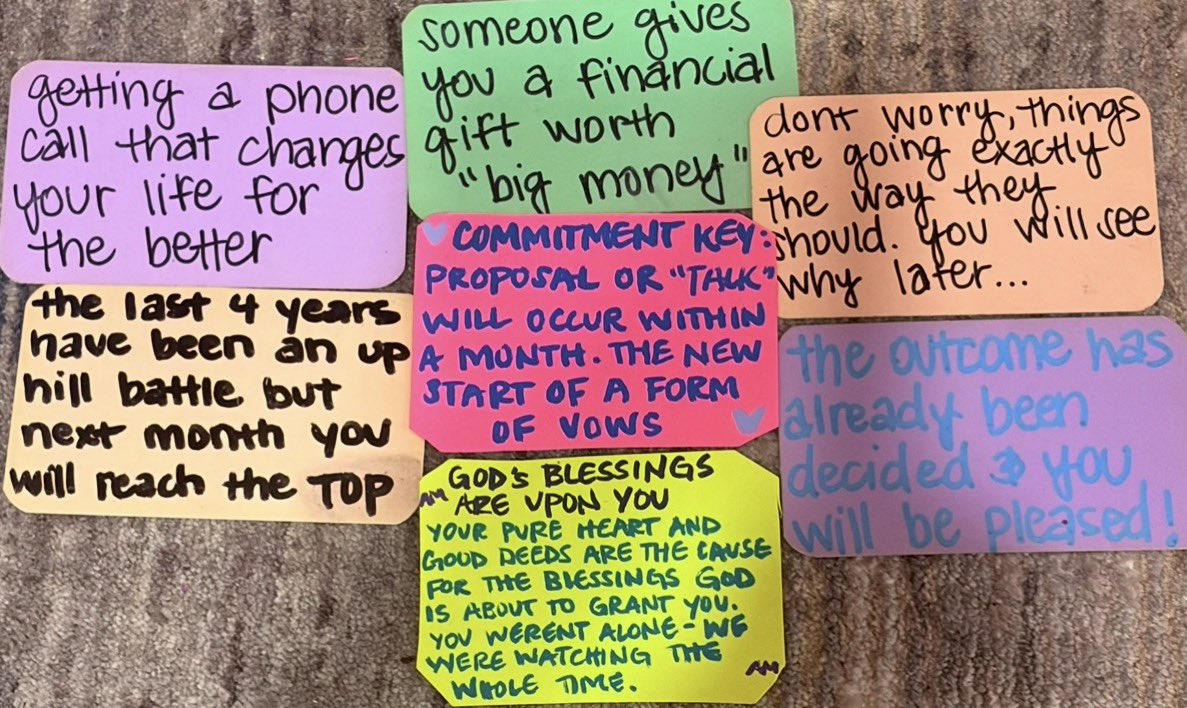 getting a phone
call that changes
your life for
the better
someone gives
you a financial
gift worth
"big money"
dont worry, things
are going exactly
the way they
should. you will see
why later...
the last 4 years
have been an up
hill battle but
next month you
will reach the TOP
COMMITMENT KEY:
PROPOSAL OR "TALK"
WILL OCCUR WITHIN
A MONTH. THE NEW
START OF A FORM
OF VOWS
the outcome has
already been
decided & you
will be pleased!
GOD'S BLESSINGS
AM ARE UPON YOU
YOUR PURE HEART AND
GOOD DEEDS ARE THE CAUSE
FOR THE BLESSINGS GOD
IS ABOUT TO GRANT YOU.
YOU WERENT ALONE - WE
WERE WATCHING THE
WHOLE TIME. AM